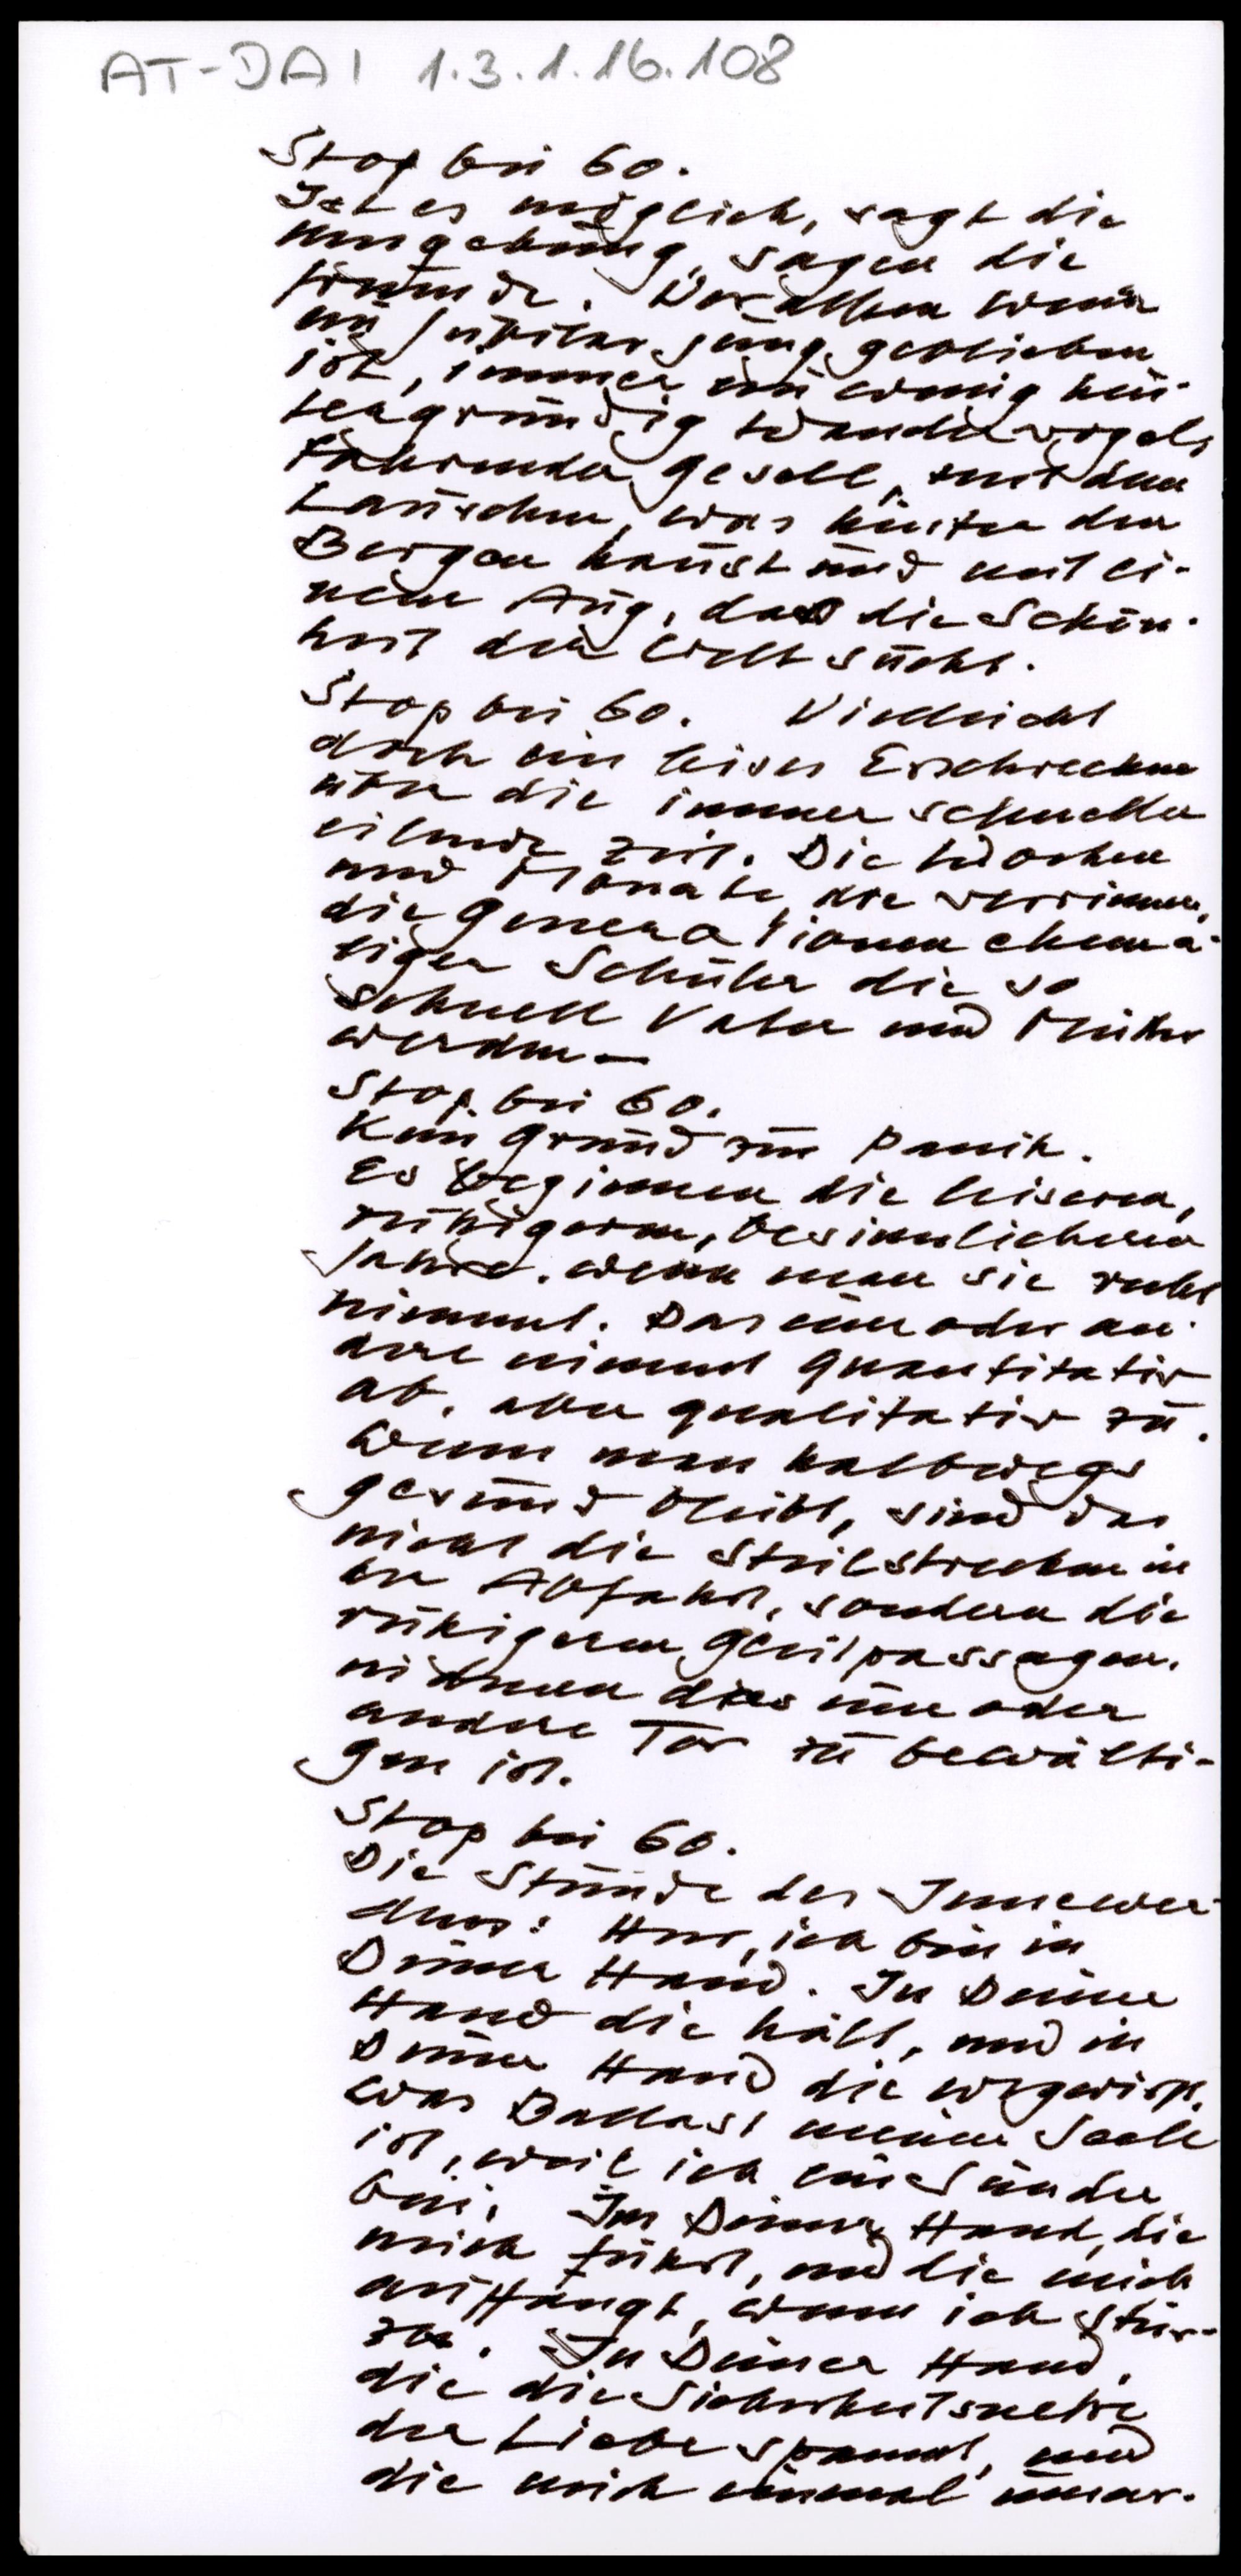 AT-DAI 1.3.1.16.108
Stop bei 60.
Ist es möglich, sagt die
Umgebung, sagen die
Freunde. Vor allem wenn
ein Jubilar jung geblieben
ist, immer ein wenig hin-
tergründig Wandervogel,
Fahrender Gesell, mit dem
Lauschen, was hinter den
Bergen haust und mit ei-
nem Aug, das die Schön-
heit der Welt sucht.
Stop bei 60. Vielleicht
doch ein leises Erschrecken
über die immer schneller
eilende Zeit. Die Wochen
und Monate, die verrinnen,
die Generationen ehema-
liger Schüler die so
schnell Vater und Mutter
werden –
Stop bei 60.
Kein Grund zur Panik.
Es beginnen die leiseren,
ruhigeren, besinnlicheren
Jahre, wenn man sie recht
nimmt. Das eine oder an-
dere nimmt quantitativ
ab, aber qualitativ zu.
Wenn man halbwegs
gesund bleibt, sind das
nicht die Steilstrecken in
der Abfahrt, sondern die
ruhigeren Gleitpassagen,
in denen das eine oder
andere Tor zu bewälti-
gen ist.
Stop bei 60.
Die Stunde des Innewer-
dens: Herr, ich bin in
Deiner Hand. In Deiner
Hand die hält, und in
Deiner Hand die wegwirft,
was Ballast meiner Seele
ist, weil ich ein Sünder
bin. In Deiner Hand, die
mich führt, und die mich
auffängt, wenn ich stür-
ze. In Deiner Hand,
die die Sicherheitsnetze
der Liebe spannt, und
die mich einmal umar-